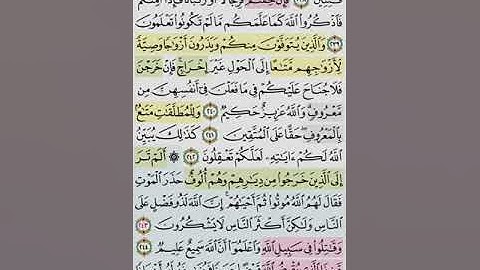 قَٰنِتِينَ ٢٣٨ فَإِنْ خِفْتُمْ فَرِجَالًا أَوْ رُكْبَانًا فَإِذَآ أَمِنتُمْ
فَٱذْكُرُوا۟ ٱللَّهَ كَمَا عَلَّمَكُم مَّا لَمْ تَكُونُوا۟ تَعْلَمُونَ
٢٣٩ وَٱلَّذِينَ يُتَوَفَّوْنَ مِنكُمْ وَيَذَرُونَ أَزْوَٰجًا وَصِيَّةً
لِّأَزْوَٰجِهِم مَّتَٰعًا إِلَى ٱلْحَوْلِ غَيْرَ إِخْرَاجٍ ۚ فَإِنْ خَرَجْنَ
فَلَا جُنَاحَ عَلَيْكُمْ فِى مَا فَعَلْنَ فِىٓ أَنفُسِهِنَّ مِن
مَّعْرُوفٍ ۗ وَٱللَّهُ عَزِيزٌ حَكِيمٌ ٢٤٠ وَلِلْمُطَلَّقَٰتِ مَتَٰعٌۢ
بِٱلْمَعْرُوفِ ۖ حَقًّا عَلَى ٱلْمُتَّقِينَ ٢٤١ كَذَٰلِكَ يُبَيِّنُ
ٱللَّهُ لَكُمْ ءَايَٰتِهِۦ لَعَلَّكُمْ تَعْقِلُونَ ٢٤٢ ۞ أَلَمْ تَرَ
إِلَى ٱلَّذِينَ خَرَجُوا۟ مِن دِيَٰرِهِمْ وَهُمْ أُلُوفٌ حَذَرَ ٱلْمَوْتِ
فَقَالَ لَهُمُ ٱللَّهُ مُوتُوا۟ ثُمَّ أَحْيَٰهُمْ ۚ إِنَّ ٱللَّهَ لَذُو فَضْلٍ عَلَى
ٱلنَّاسِ وَلَٰكِنَّ أَكْثَرَ ٱلنَّاسِ لَا يَشْكُرُونَ ٢٤٣
وَقَٰتِلُوا۟ فِى سَبِيلِ ٱللَّهِ وَٱعْلَمُوٓا۟ أَنَّ ٱللَّهَ سَمِيعٌ عَلِيمٌ ٢٤٤